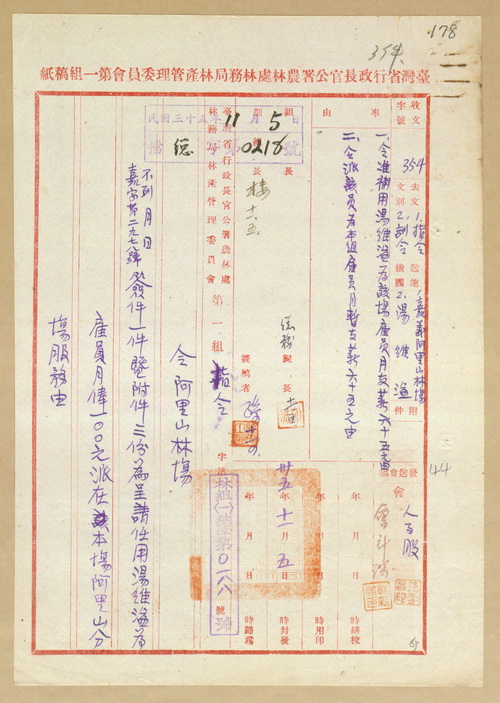 178
354
臺灣省行政長官公署農林處林務局林產管理委員會第一組稿紙
收文
字號
354
去文
文別
1.指令
2.訓令
送達
機關
1.嘉義阿里山林場
2.湯維
附
件
事
由
一、令准
雇員月支薪六十五元
二、令派該員為本組雇員月暫支薪六十五元由
發送會稿
會
人事股
44
組
長
副
組
長
樓十六
課
長
擬稿者
年
月
日
時繕校
年
月
日
時用印
卅五年十一月五日
時封發
年
月
日
時歸檔
民國三十五年11月5日
0218號
臺灣省行政長官公署農林處
林務局林產管理委員會
第一組
指令
字
林組(一)
第0188號
令阿里山林場
年
月
日
嘉
字第二九七號簽件一件暨附件三份為呈請任用湯維
為
雇員月俸一〇〇元派在本場阿里山分
場服務由